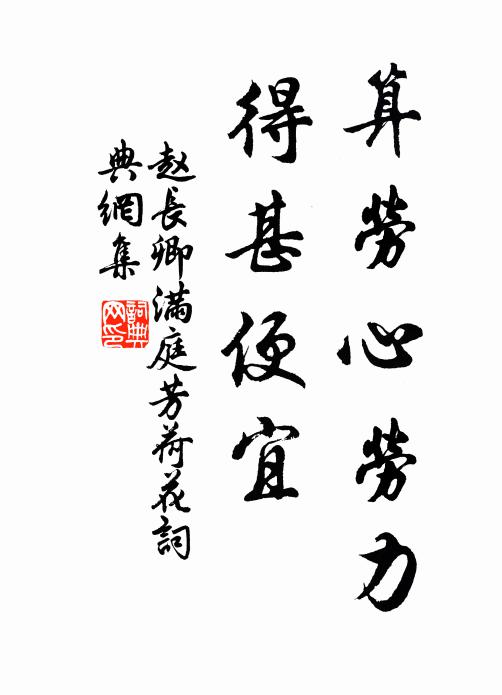 算勞心勞力
得甚便宜
赵長卿滿庭芳荷花詞
典網集
詞典
网印